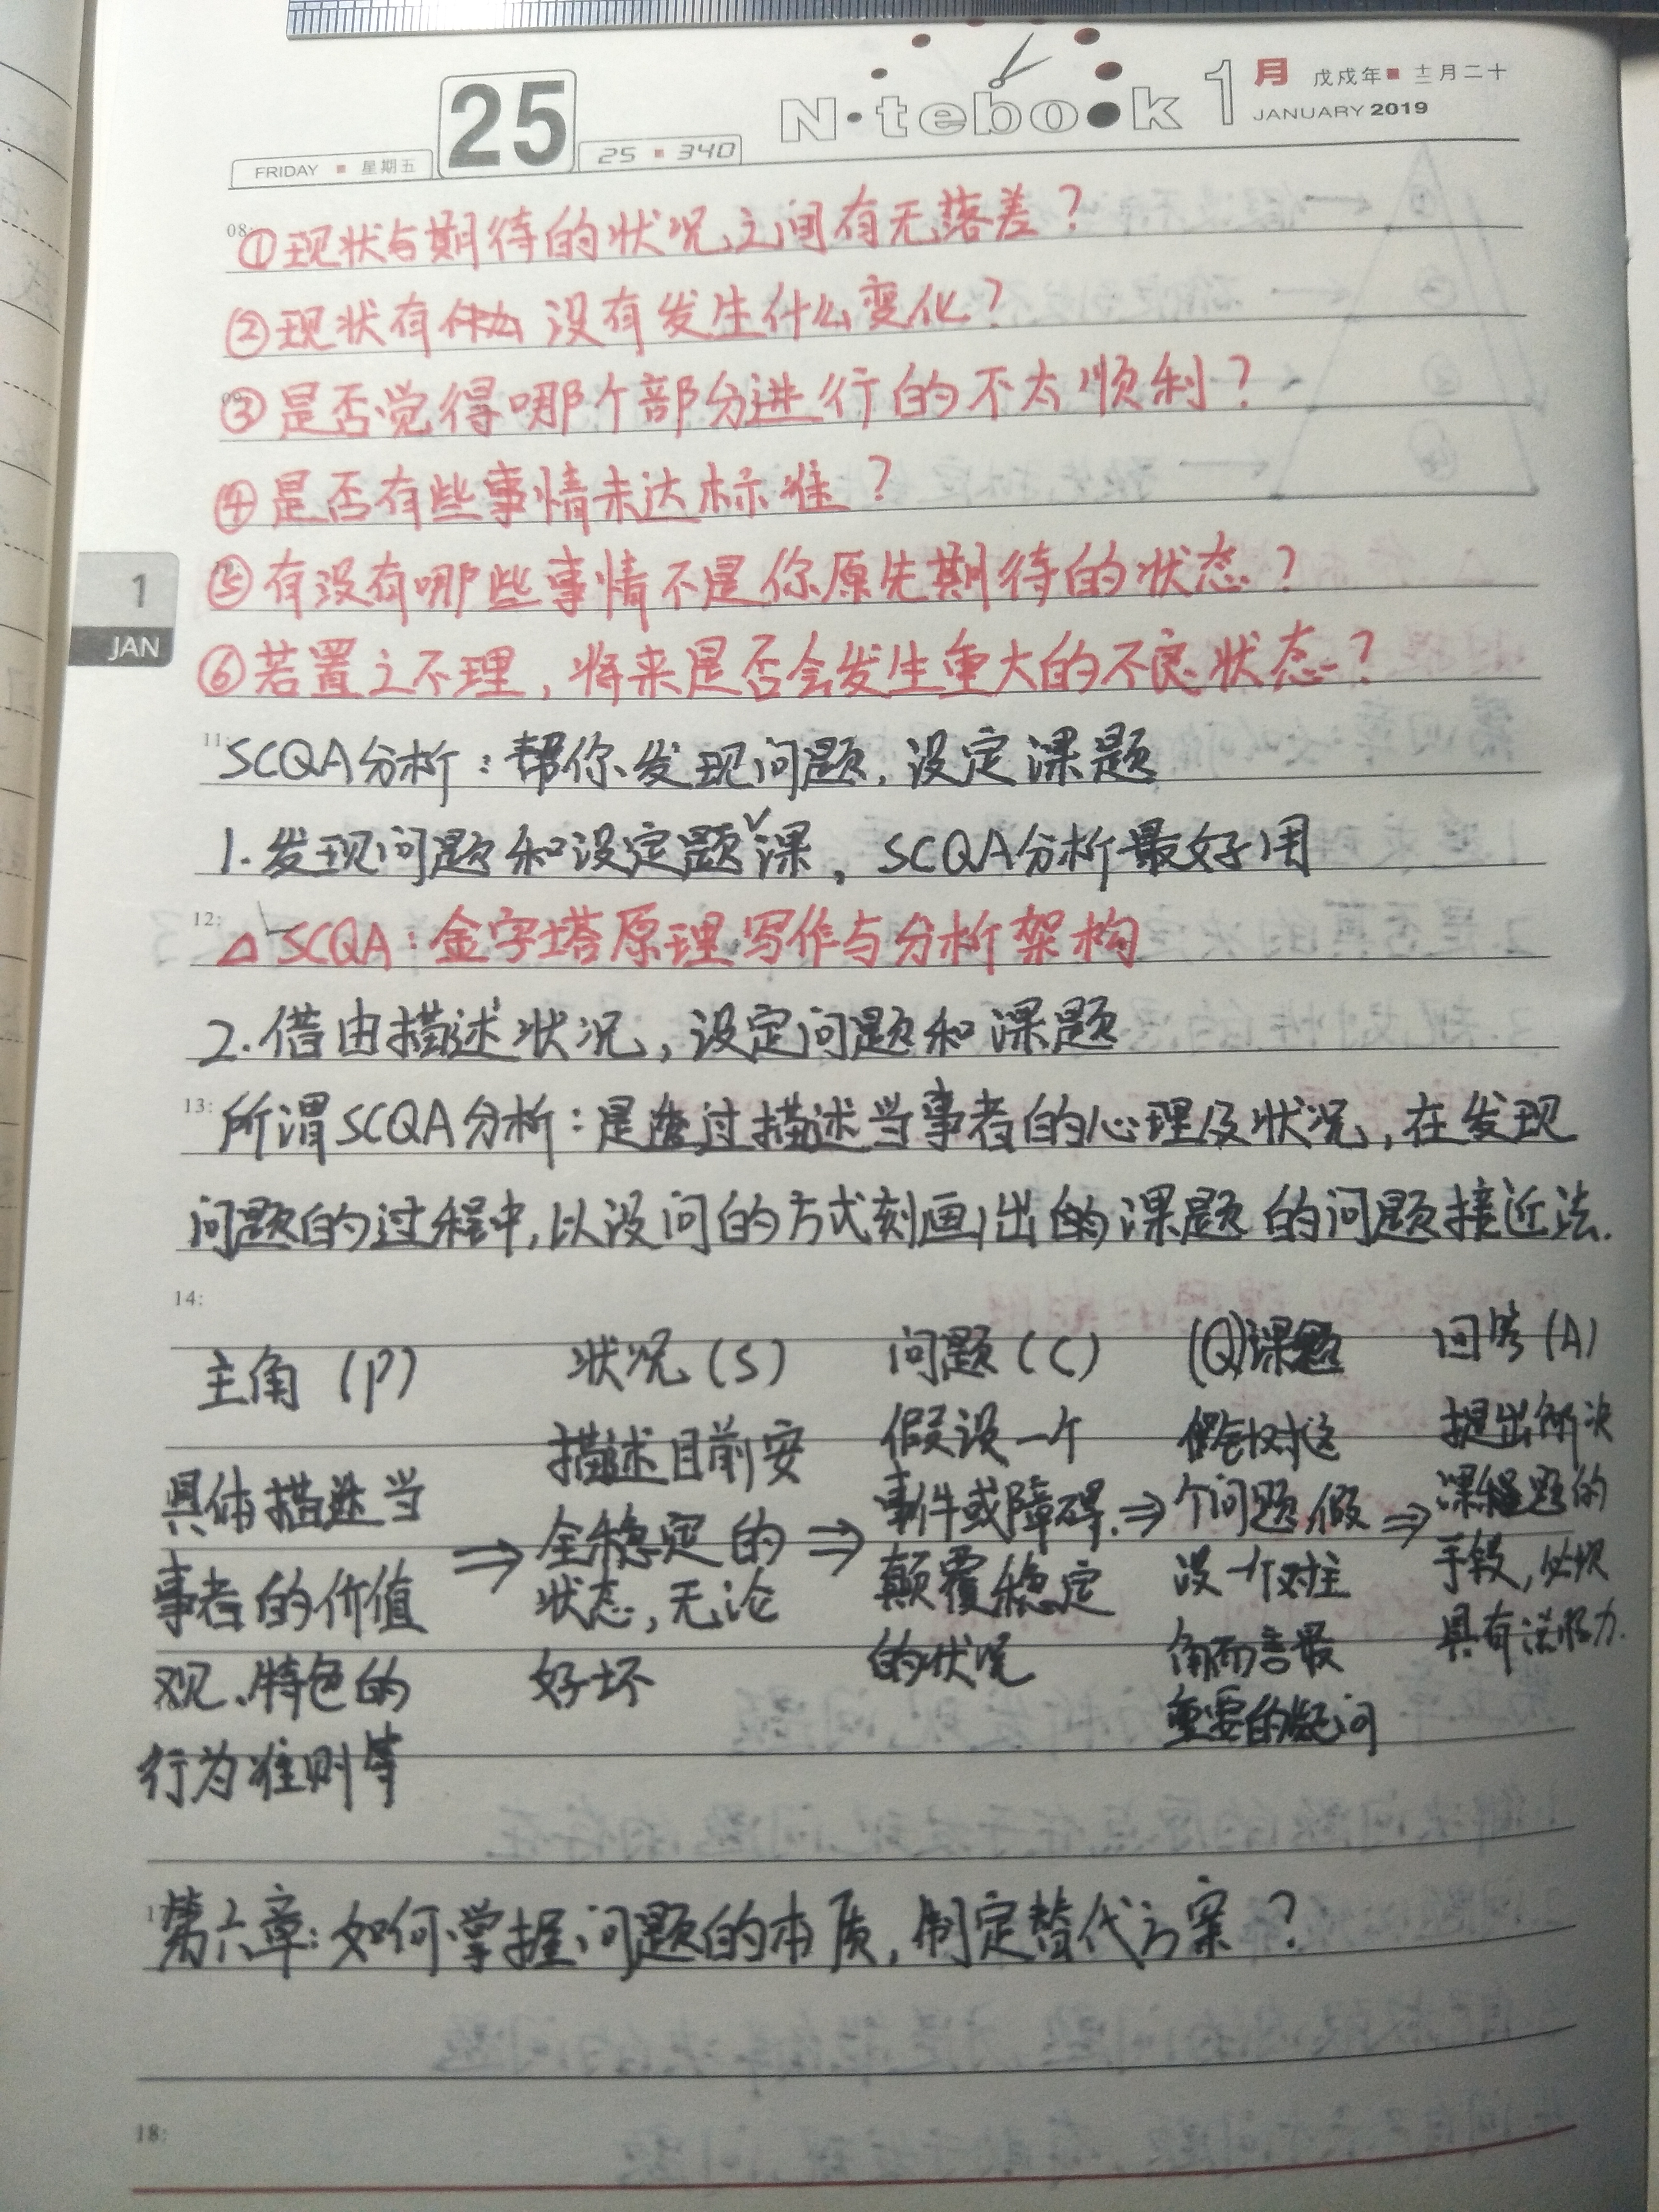 FRIDAY 星期五
25
25 340
Notebook
1月 戊戌年 十二月二十
JANUARY 2019
08:
①现状与期待的状况之间有无落差？
②现状有 没有发生什么变化？
③是否觉得哪个部分进行的不太顺利？
④是否有些事情未达标准？
1
JAN
⑤有没有哪些事情不是你原先期待的状态？
⑥若置之不理，将来是否会发生重大的不良状态？
11:
SCQA分析：帮你发现问题，设定课题
1.发现问题和设定题课，SCQA分析最好用
12:
△SCQA：金字塔原理写作与分析架构
2.借由描述状况，设定问题和课题
13:
所谓SCQA分析：是透过描述当事者的心理及状况，在发现
问题的过程中，以设问的方式刻画出的课题的问题接近法.
14:
主角（P）
具体描述当
事者的价值
观、特色的
行为准则等
⇒
状况（S）
描述目前安
全稳定的
状态，无论
好坏
⇒
问题（C）
假设一个
事件或障碍.
颠覆稳定
的状况
⇒
(Q)课题
针对这
个问题，假
设一个对主
角而言最
重要的疑问
⇒
回答（A）
提出解决
课题的
手段，必须
具有说服力.
第六章：如何掌握问题的本质，制定替代方案？
18: